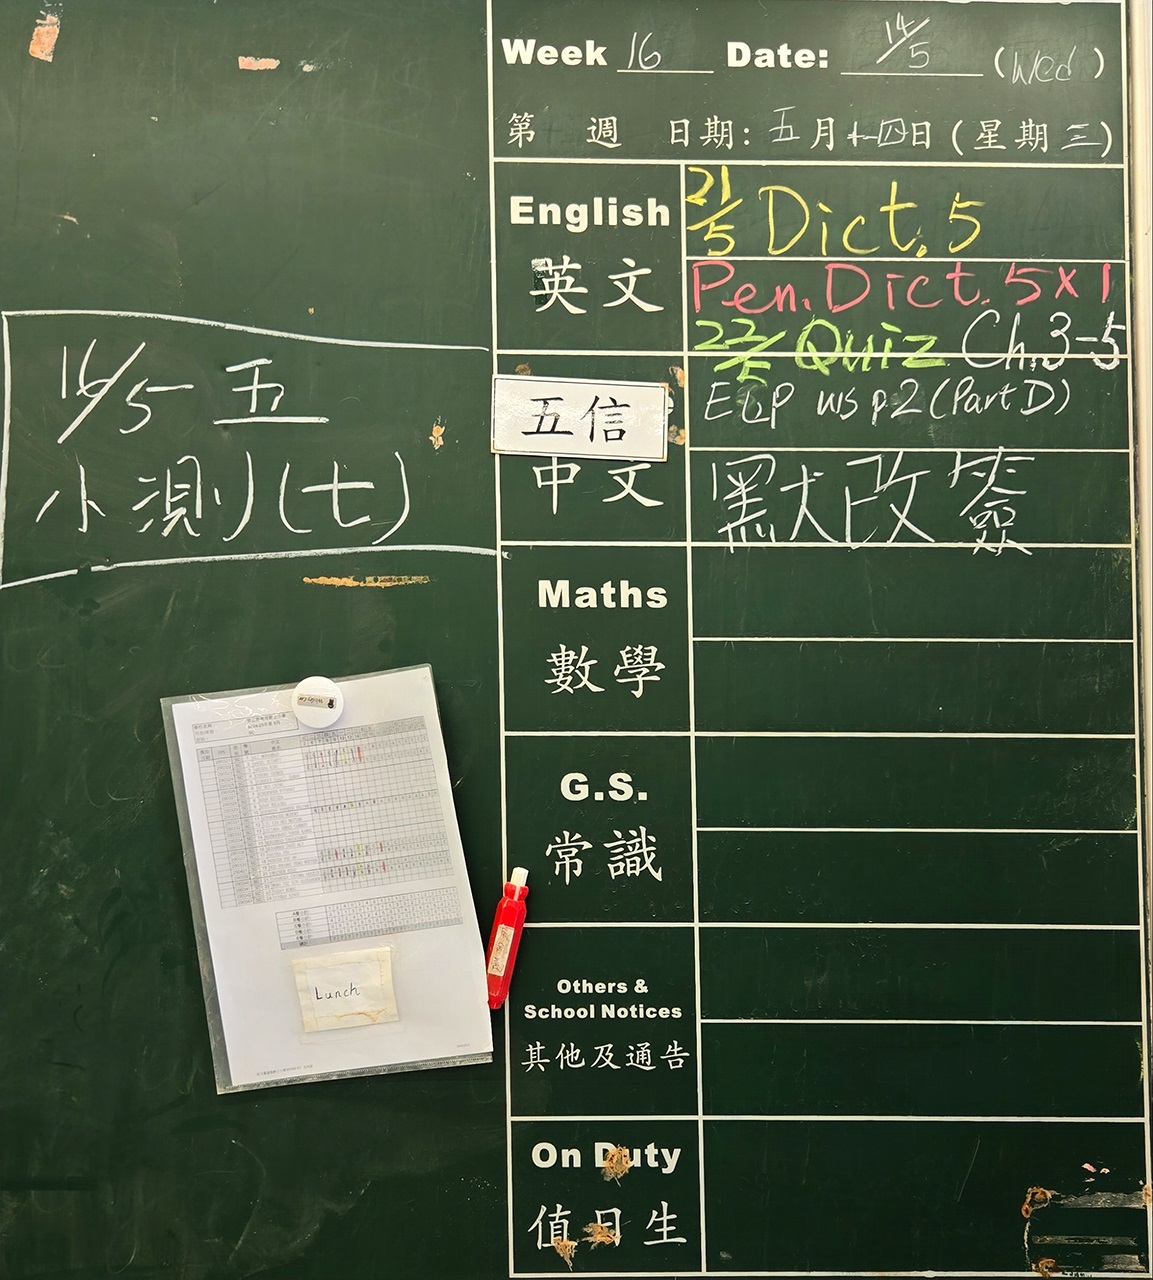 Week 16 Date: 14/5 (Wed)
第 週 日期: 五月十四日(星期三)
English
英文
21/5 Dict. 5
Pen. Dict. 5x1
22/5 Quiz Ch.3-5
ELP ws p2 (Part D)
16/5 五
小測(七)
五信
中文
默改簽
Maths
數學
G.S.
常識
Lunch
Others &
School Notices
其他及通告
On Duty
值日生